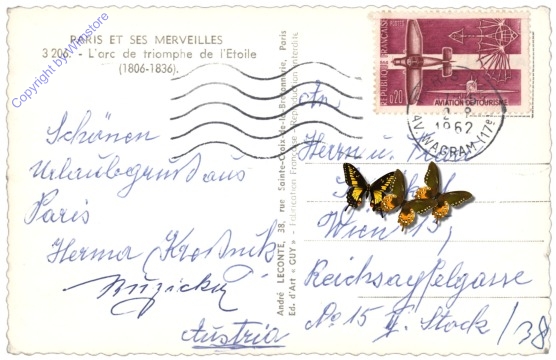 PARIS ET SES MERVEILLES
3 206. - L'arc de triomphe de l'Etoile
(1806-1836).
Copyright by Winpstore
Schönen
Urlaubsgruß aus
Paris
Herma
Ruzicka
Austria
André LECONTE, 38, rue Sainte-Croix-de-la-Bretonnerie, Paris
Ed. d'Art « GUY » - Fabrication Française - Reproduction interdite
REPUBLIQUE FRANÇAISE
POSTES
0,20
AVIATION DE TOURISME
1962
AV. WAGRAM (17e)
An,
Herrn u. Frau
Wien 15,
Reichsapfelgasse
No. 15 II. Stock/38